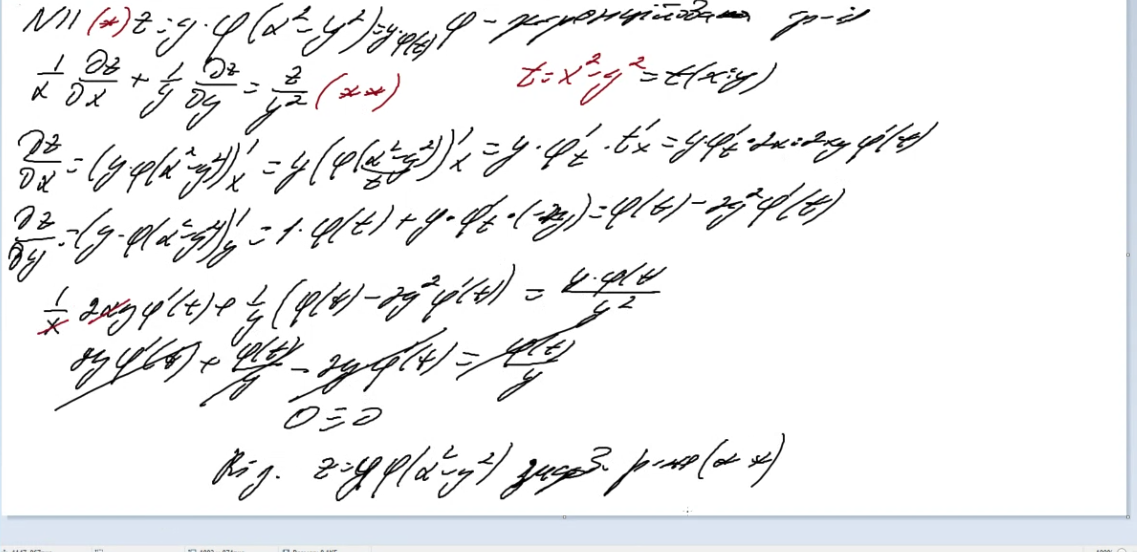 N11 (*) z = y · φ(x² - y²) = y·φ(t) φ - диференційована ф-ія
1/x ∂z/∂x + 1/y ∂z/∂y = z/y² (**) t = x² - y² = t(x;y)
∂z/∂x = (y·φ(x²-y²))'ₓ = y(φ(x²-y²))'ₓ = y·φ'ₜ·t'ₓ = yφ'ₜ·2x = 2xyφ'(t)
∂z/∂y = (y·φ(x²-y²))'ᵧ = 1·φ(t) + y·φ'ₜ·(-2y) = φ(t) - 2y²φ'(t)
1/x 2xyφ'(t) + 1/y (φ(t) - 2y²φ'(t)) = y·φ(t)/y²
2yφ'(t) + φ(t)/y - 2yφ'(t) = φ(t)/y
0 ≡ 0
Від. z = yφ(x²-y²) р-ня (**)